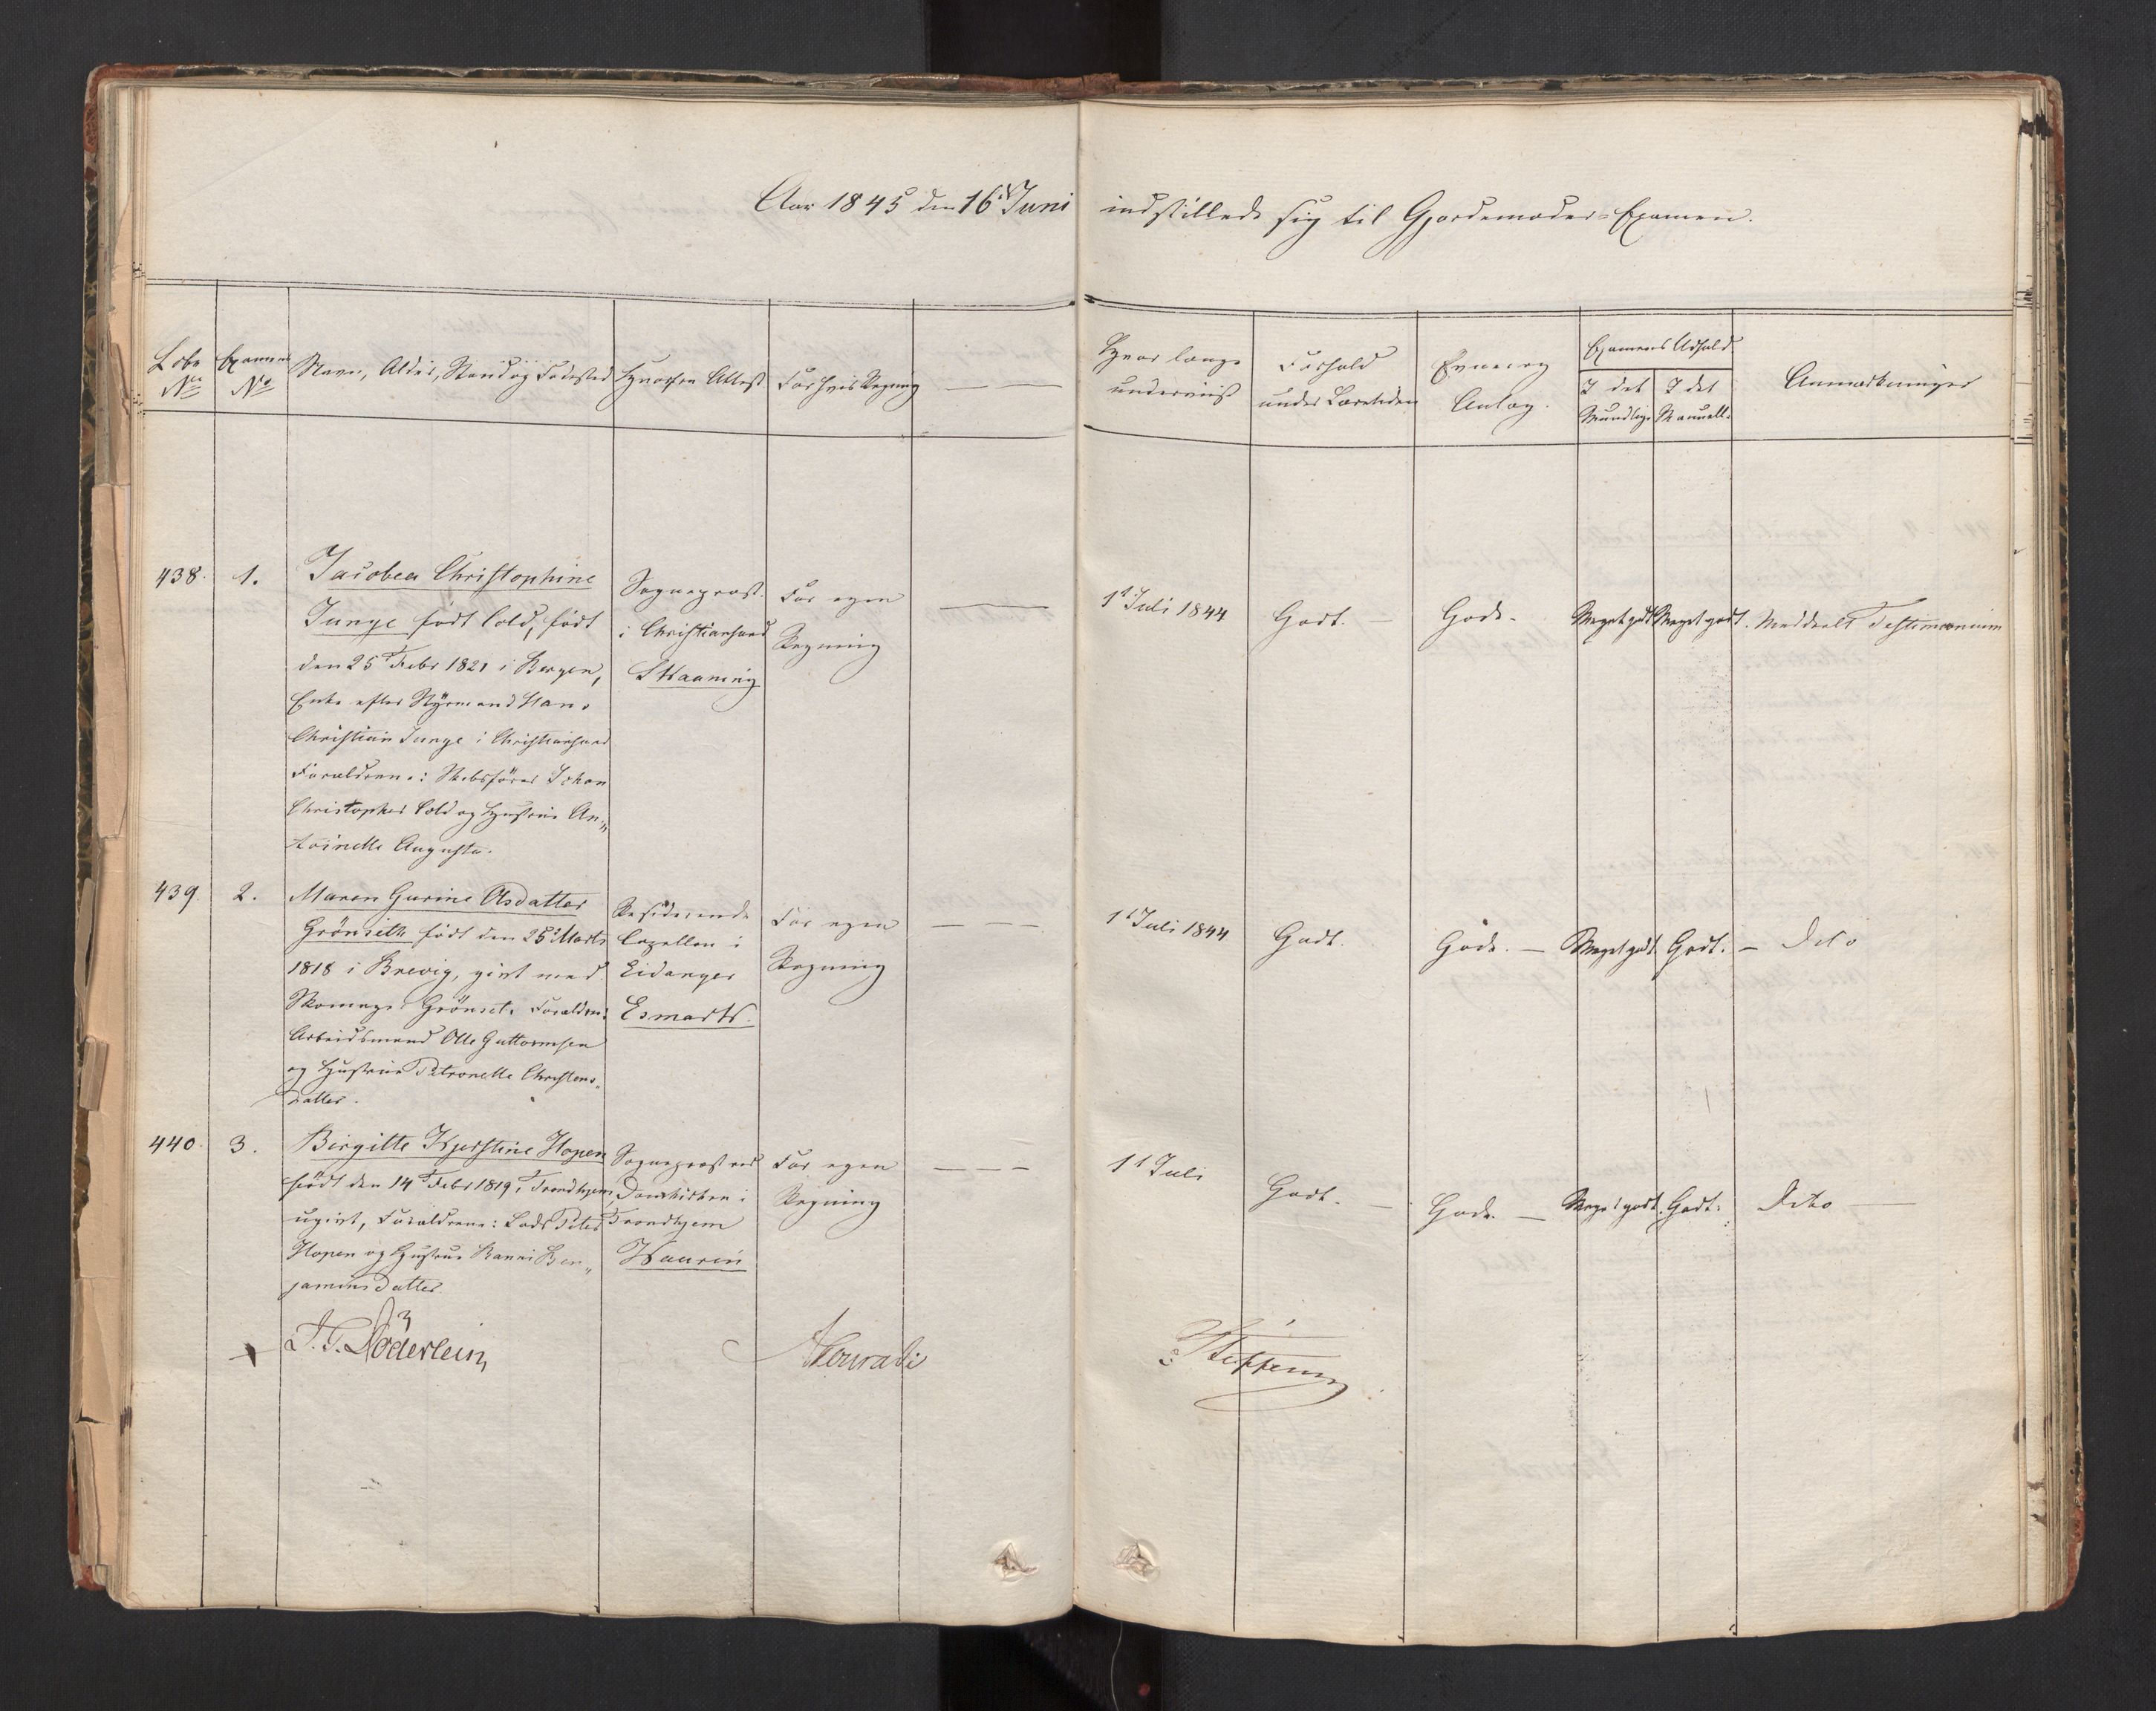 Aar 1845 den 16de Juni indstillede sig til Gjordemoder-Examen.
Løbe No
Examens No
Navn, Alder, Stand og Fødested
Hvorfra Attest
For hvis Regning
Hvor længe underviist
Forhold under Læretiden
Evner og Anlæg.
Examens Udfald.
I det Mundtlige
I det Manuelle
Anmærkninger
438. 1.
Jacobea Christophine
Junge født Cold, født
den 25de Febr 1821 i Bergen,
Enke efter Styrmand Hans
Christian Junge i Christiansand
Forældrene: Skibsfører Johan
Christopher Cold og Hustrue An„
toinette Augusta.
Sognepræst
i Christiansand
For egen
Regning
1t Juli 1844
Godt. —
Gode.
Meget godt
Meget godt.
Meddeelt Testimonium
439. 2.
Maren Gurine Olsdatter
Grönseth født den 25de Marts
1818 i Brevig, givt med
Skomager Grönset. Forældre:
Arbeidsmand Olle Guttormsen
og Hustrue Petronelle Christens„
datter.
Residerende
Capellan i
Eidanger
Esmark.
For egen
Regning
1t Juli 1844
Godt.
Gode. —
Meget godt.
Godt. —
Dito
440. 3.
Birgitte Kjerstine Hopen
født den 14de Febr 1819 i Trondhjem
ugivt, Forældrene: Lods Peter
Hopen og Hustrue Ranni Ben„
jaminsdatter.
Sognepræst ved
Domkirken i
Trondhjem
For egen
Regning
1t Juli
Godt. —
Gode. —
Meget godt.
Godt.
Dito —
J. T. Döderlein
A Conradi
Steffens